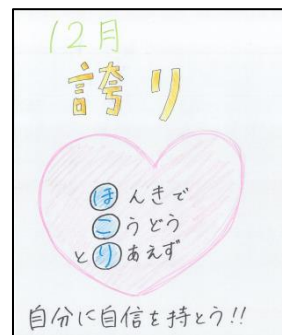 12月
誇り
ほんきで
こうどう
とりあえず
自分に自信を持とう!!